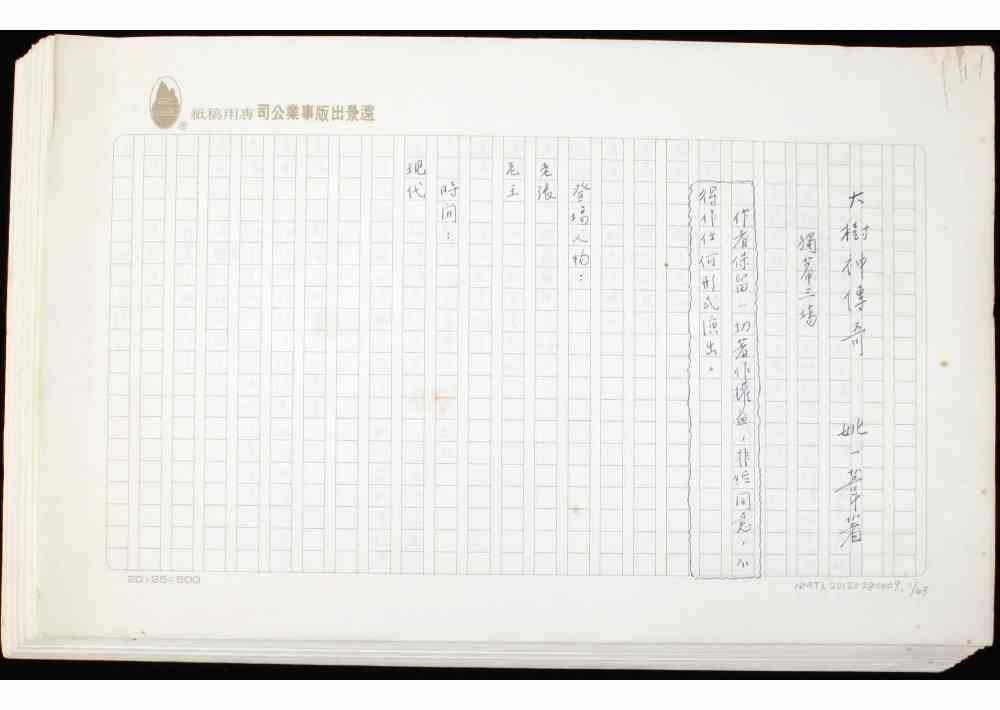 遠景出版事業公司專用稿紙
大樹神傳奇　姚一葦著
獨幕三場
作者保留一切著作權益，非經同意，不
得作任何形式演出。
登場人物：
老張
老王
時間：
現代
20×25=500
NMTL20120280009, 1/43